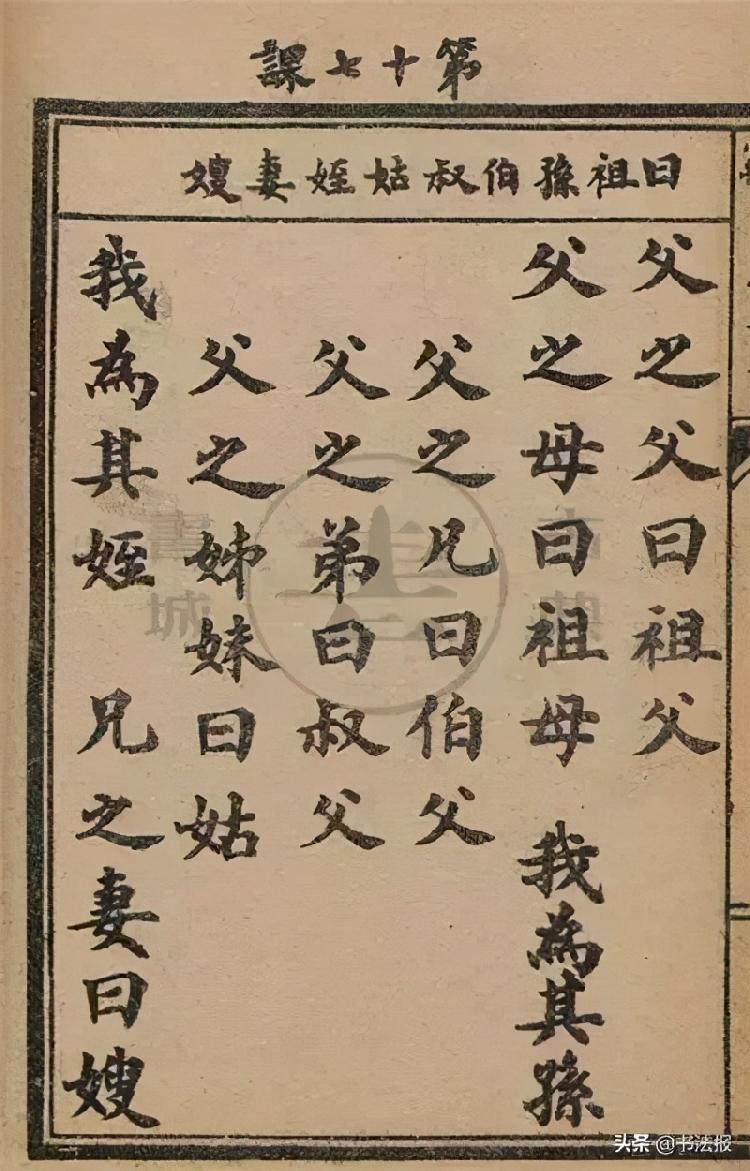 第十七課
曰祖孫伯叔姑姪妻嫂
父之父曰祖父
父之母曰祖母 我為其孫
父之兄曰伯父
父之弟曰叔父
父之姊妹曰姑
我為其姪 兄之妻曰嫂
書城
头条 @书法报